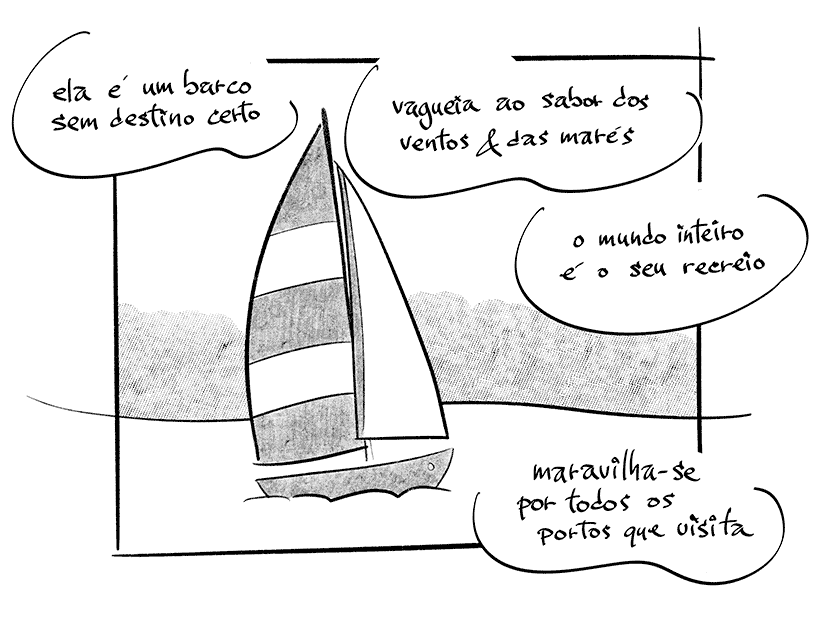 ela é um barco
sem destino certo
vagueia ao sabor dos
ventos & das marés
o mundo inteiro
é o seu recreio
maravilha-se
por todos os
portos que visita